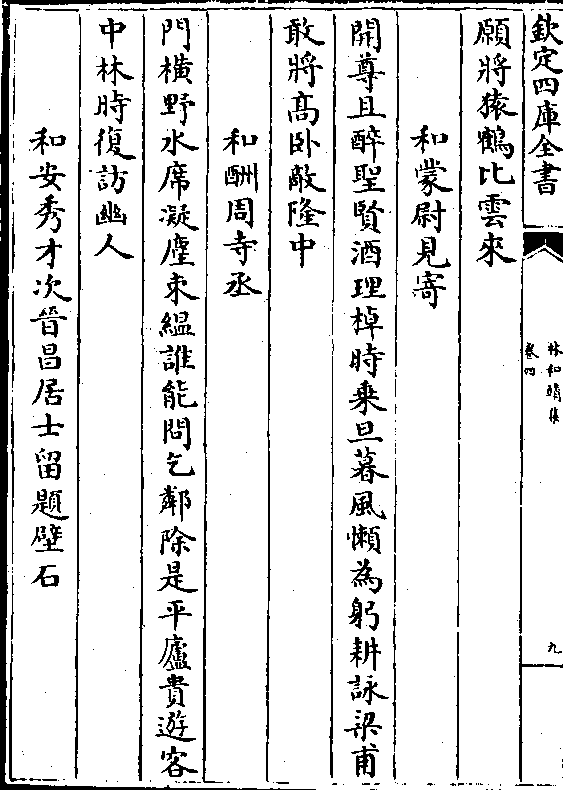 欽定四庫全書
林和靖集
卷四
九
願將猿鶴比雲來
和蒙尉見寄
開尊且醉聖賢酒理棹時乗旦暮風懶為躬耕詠梁甫
敢將髙卧敵隆中
和酬周寺丞
門横野水席凝塵束緼誰能問乞鄰除是平廬貴遊客
中林時復訪幽人
和安秀才次晉昌居士留題壁石